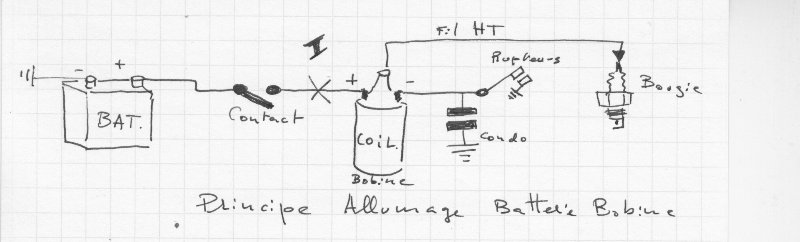 Fil HT
I
- +
+ -
Rupteurs
Bougie
BAT.
Contact
COIL
Condo
Bobine
Principe Allumage Batterie Bobine